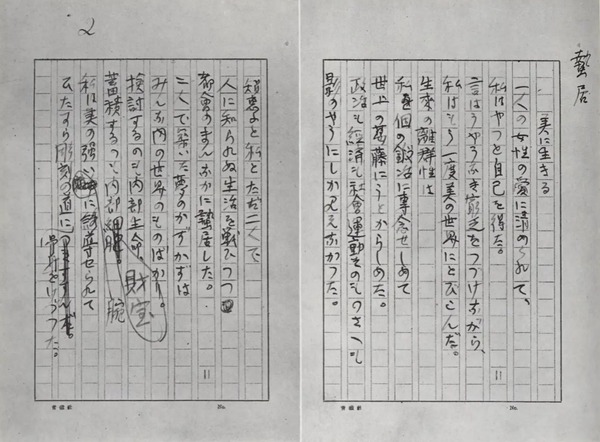 蟄居
美に生きる
一人の女性の愛に清められて、
私はやつと自己を得た。
言はうやうなき窮乏をつづけながら、
私はもう一度美の世界にとびこんだ。
生来の離群性は
私を個の鍛冶に専念せしめて
世上の葛藤にうとからしめた。
政治も経済も社会運動そのものさへも
影のやうにしか見えなかつた。
2
智恵子と私とただ二人で
人に知られぬ生活を戦ひつつ
都会のまんなかに蟄居した。
二人で築いた夢のかずかずは
みんな内の世界のものばかり。
検討するのも内部生命
蓄積するのも内部財宝。
私は美の強い腕に誘導せられて
ひたすら彫刻の道に骨身をけづつた。
No.
No.